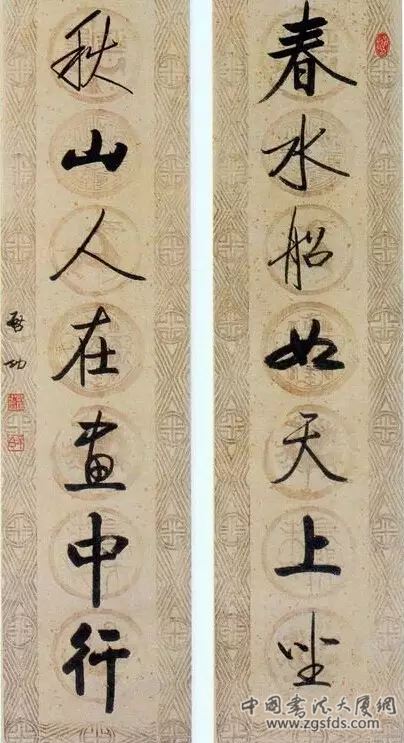 春水船如天上坐
秋山人在画中行
启功
中国书法大厦网
www.zgsfds.com